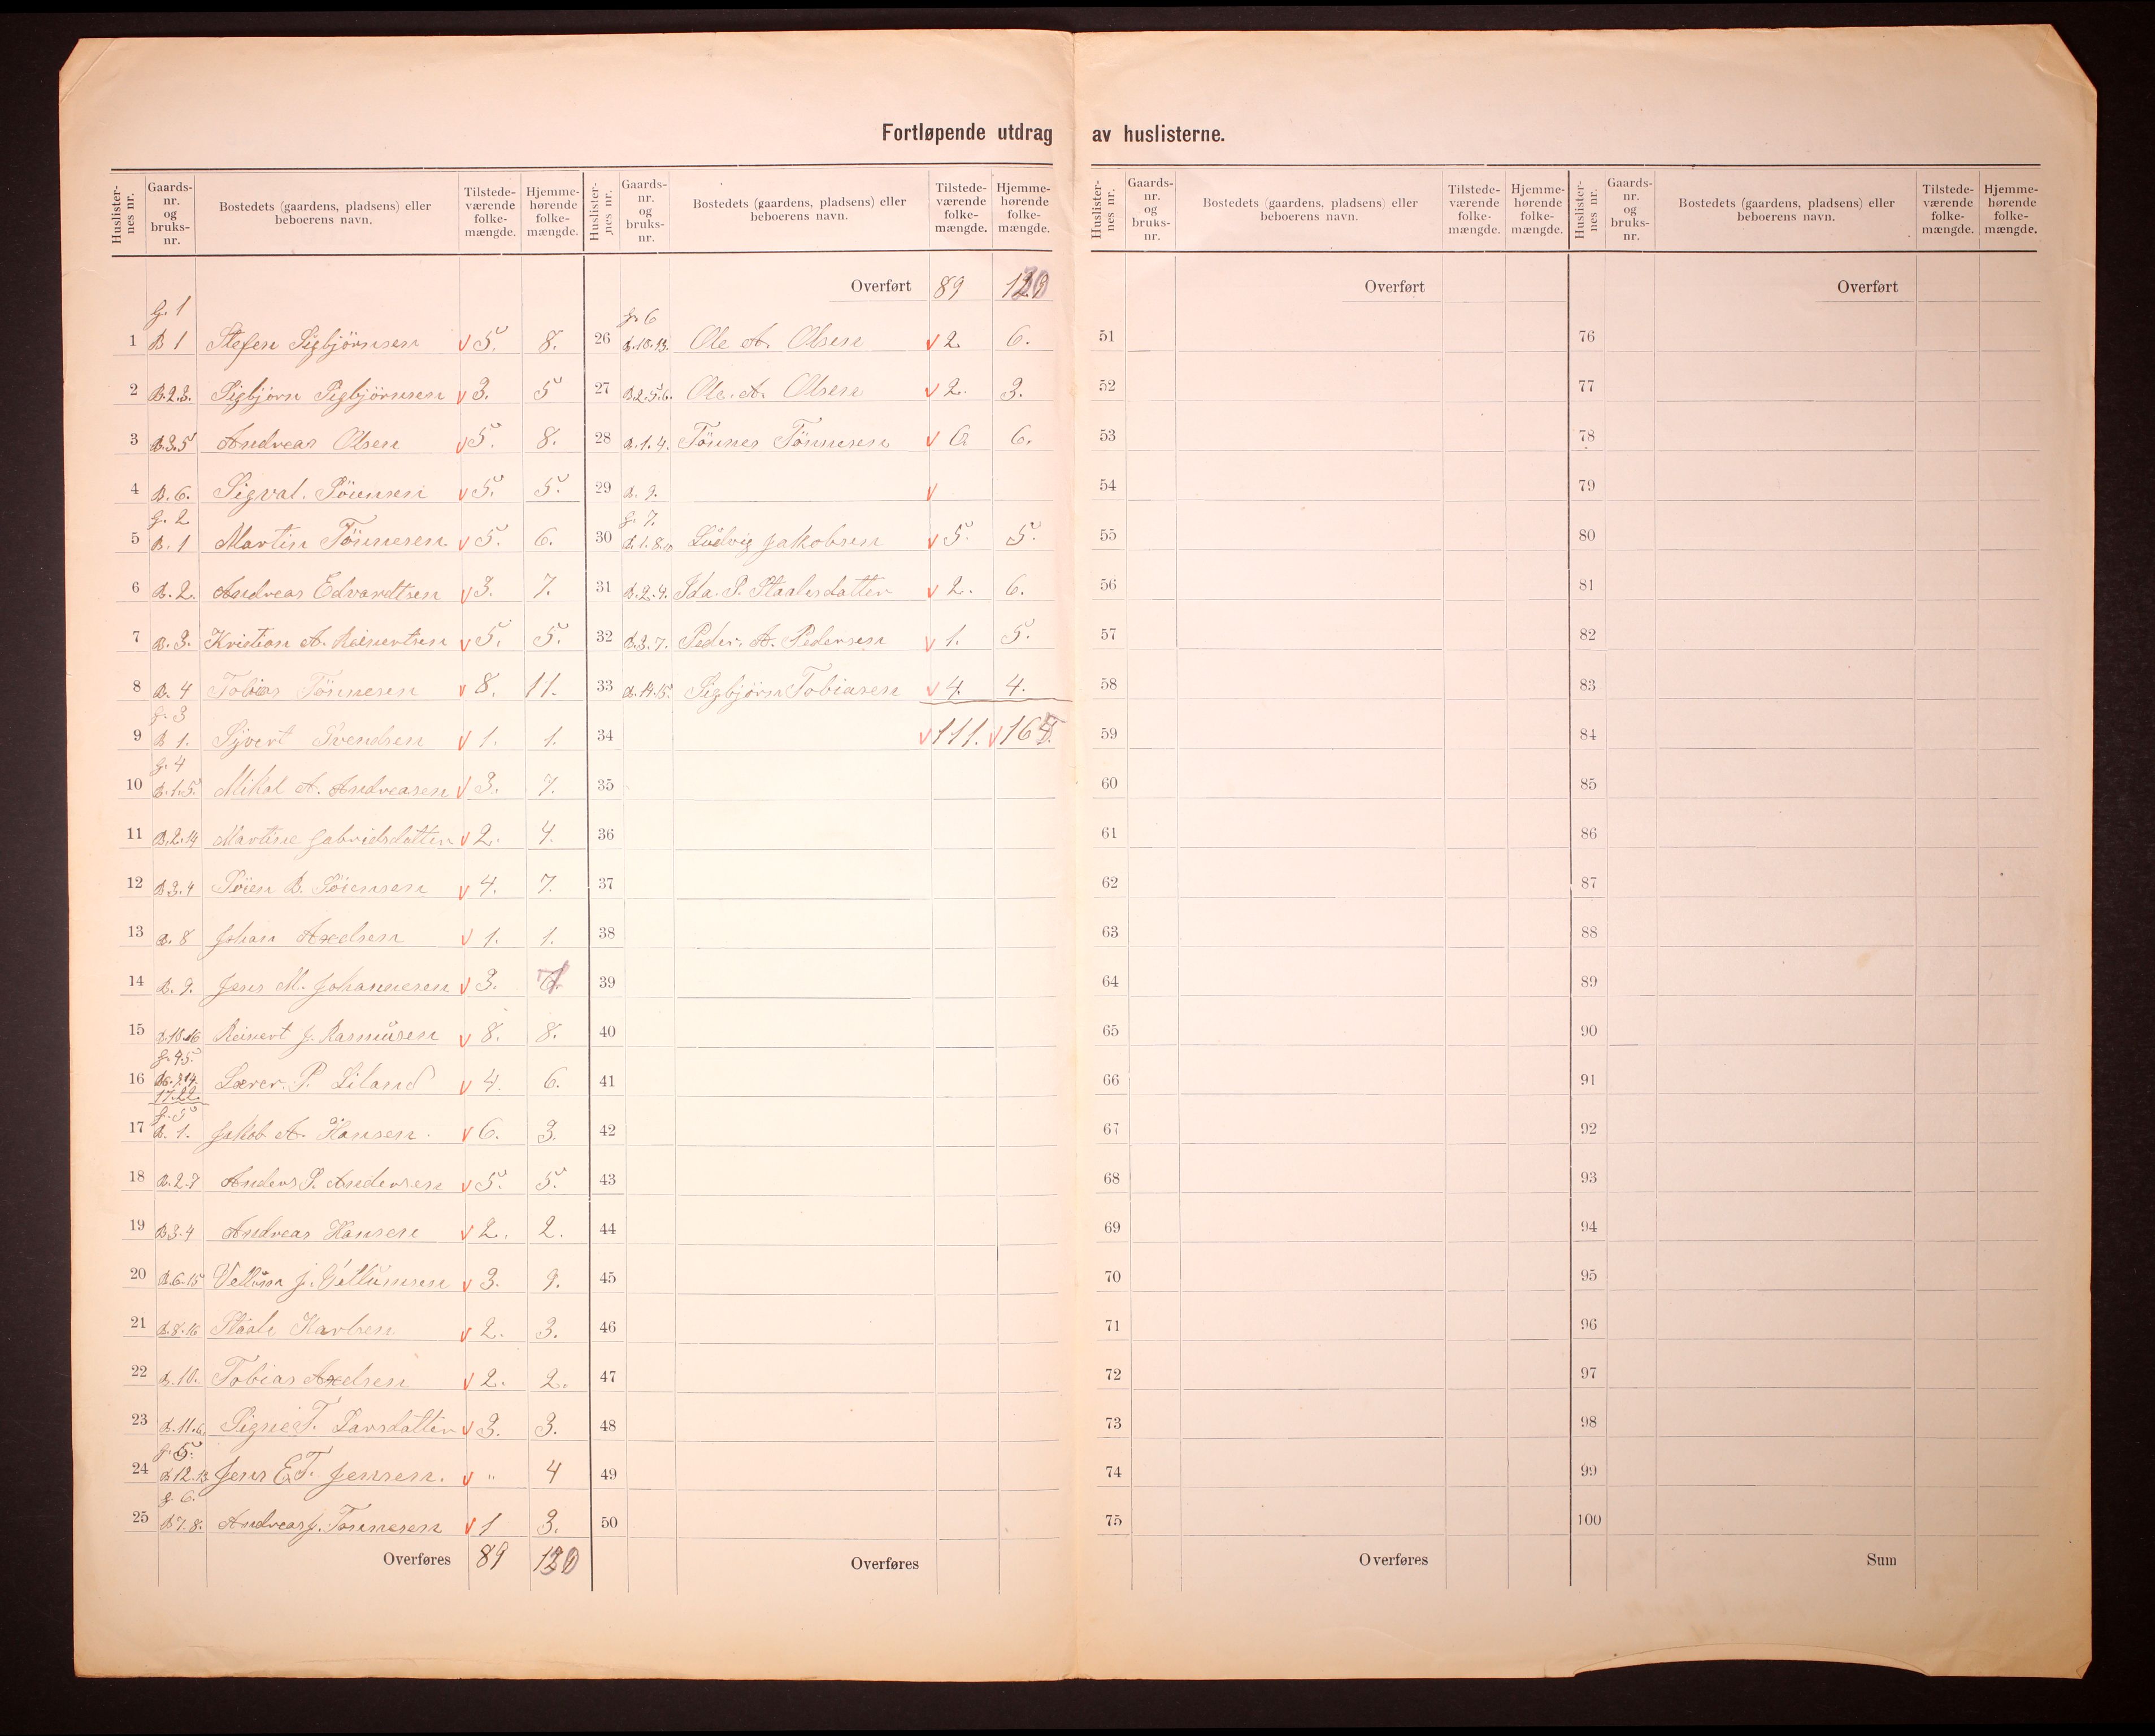 Fortløpende utdrag av huslisterne.
Huslisternes nr. Gaards-nr. og bruks-nr. Bostedets (gaardens, pladsens) eller beboerens navn. Tilstede-værende folke-mængde. Hjemme-hørende folke-mængde.
1 G. 1 B 1 Stefen Sigbjörnsen 5. 8.
2 B. 2.3. Sigbjörn Sigbjörnsen 3. 5
3 B. 3.5 Andreas Olsen 5. 8.
4 B. 6. Sigval. Söiensen 5. 5.
5 G. 2 B. 1 Martin Tönnesen 5. 6.
6 B. 2. Andreas Edvardtsen 3. 7.
7 B. 3. Kristian A. Reinertsen 5. 5.
8 B. 4 Tobias Tönnesen 8. 11.
9 G. 3 B 1. Sjvert Svendsen 1. 1.
10 G. 4 B. 1.5. Mikal A. Andreasen 3. 7.
11 B. 2.14 Martine Gabrielsdatter 2. 4.
12 B 3.4 Söien B. Söiensen 4. 7.
13 B. 8 Johan Axelsen 1. 1.
14 B. 9. Jens M. Johannesen 3.
15 B. 10.16 Reinert J. Rasmusen 8. 8.
16 G. 4.5. 17.22. Lærer. P. Liland 4. 6.
17 G. 5 B. 1. Jakob A. Hansen. 6. 3.
18 B. 2.7 Anders P. Andersen 5. 5.
19 B 3.4 Andreas Hansen 2. 2.
20 B. 6.15 Vellum J. Vellumsen 3. 9.
21 B. 8.16 Staale Karlsen 2. 3.
22 B. 10. Tobias Axelsen 2. 2.
23 B. 11.6. Signe T. Larsdatter 3. 3.
24 G. 5. B 12.13 Jens E. T. Jensen. " 4
25 G. 6. B 7.8. Andreas J. Tönnesen 1 3.
Overføres 89
Huslisternes nr. Gaards-nr. og bruks-nr. Bostedets (gaardens, pladsens) eller beboerens navn. Tilstede-værende folke-mængde. Hjemme-hørende folke-mængde.
Overført 89
26 G. 6 B. 10.13. Ole A. Olsen 2. 6.
27 B. 2.5.6. Ole. A. Olsen 2. 3.
28 B. 1.4. Tönnes Tönnesen 6. 6.
29 B. 9.
30 G. 7. B. 1.8.10 Ludvig Jakobsen 5. 5.
31 B. 2.9. Ida. P. Staalesdatter 2. 6.
32 B. 3.7. Peder. A. Pedersen 1. 5.
33 B. 14.15. Sigbjörn Tobiasen 4. 4.
34 111.
35
36
37
38
39
40
41
42
43
44
45
46
47
48
49
50
Overføres
Huslisternes nr. Gaards-nr. og bruks-nr. Bostedets (gaardens, pladsens) eller beboerens navn. Tilstede-værende folke-mængde. Hjemme-hørende folke-mængde.
Overført
51
52
53
54
55
56
57
58
59
60
61
62
63
64
65
66
67
68
69
70
71
72
73
74
75
Overføres
Huslisternes nr. Gaards-nr. og bruks-nr. Bostedets (gaardens, pladsens) eller beboerens navn. Tilstede-værende folke-mængde. Hjemme-hørende folke-mængde.
Overført
76
77
78
79
80
81
82
83
84
85
86
87
88
89
90
91
92
93
94
95
96
97
98
99
100
Sum